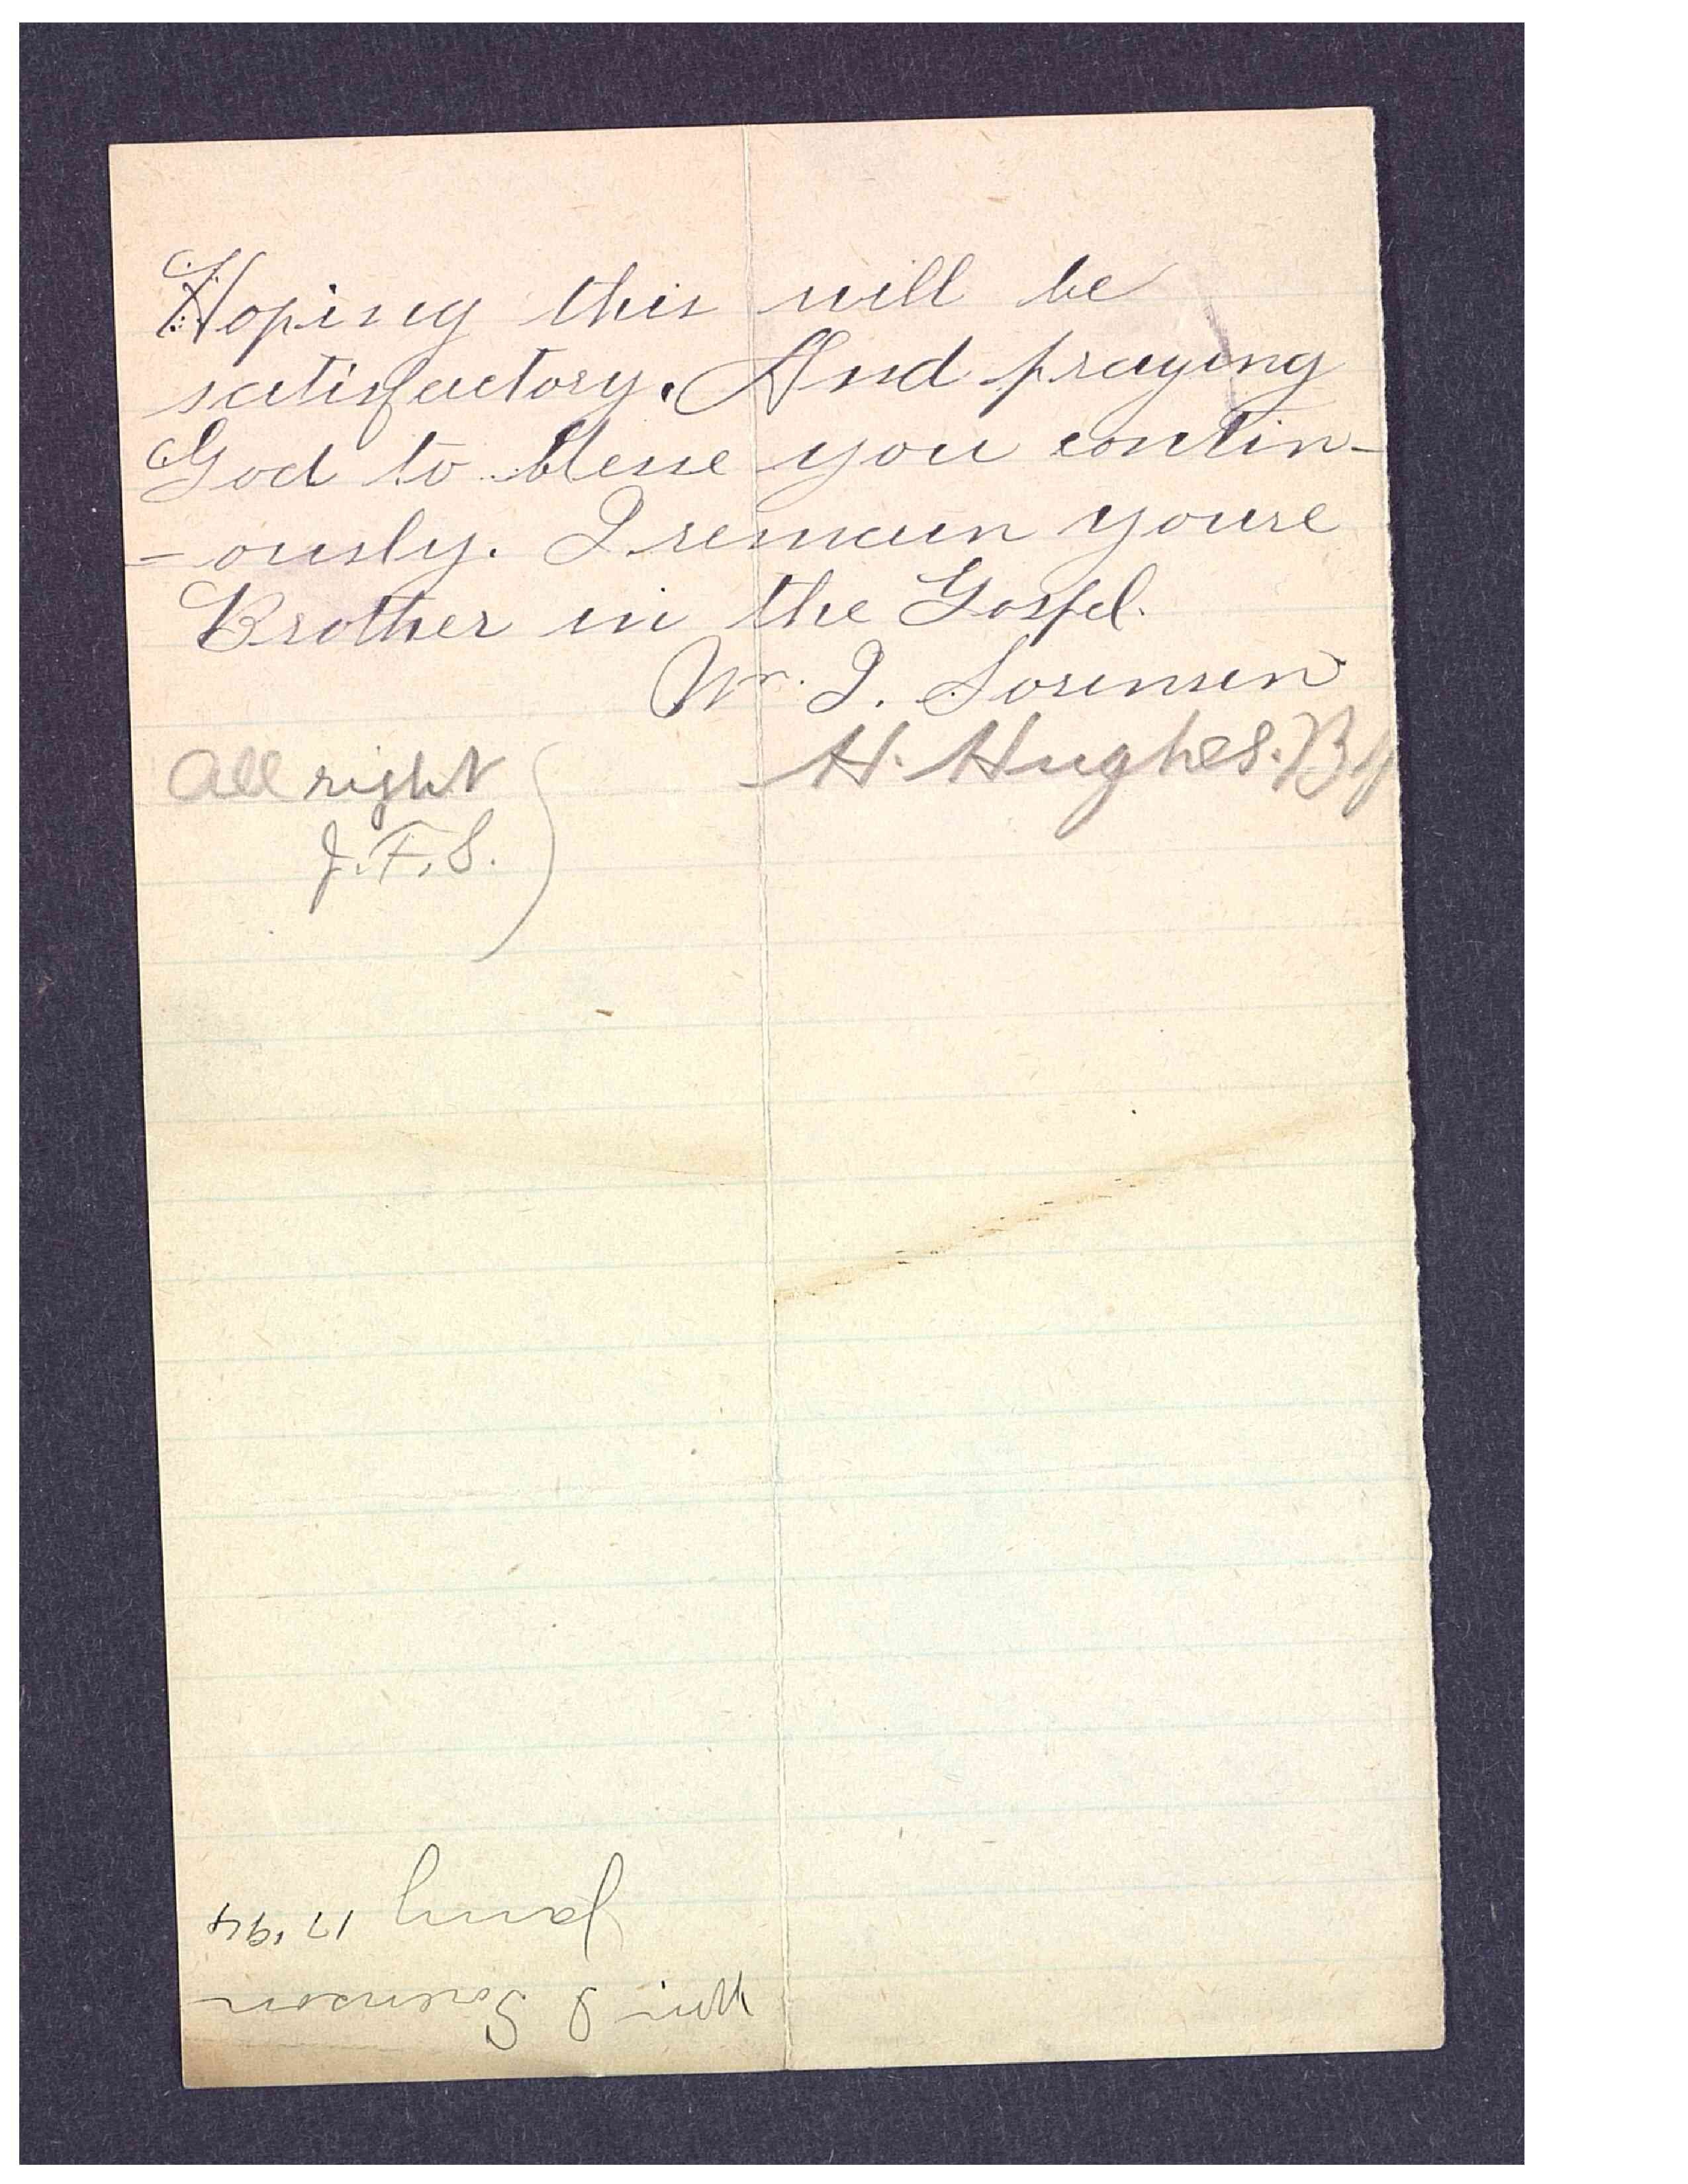 Hoping this will be
satisfactory. And praying
God to bless you contin-
-ously. I remain youre
Brother in the Gospel.
Wm. I. Sorensen
H. Hughes. Bp
All right
J. F. S.
Wm I Sorenson
Jany 17 '94